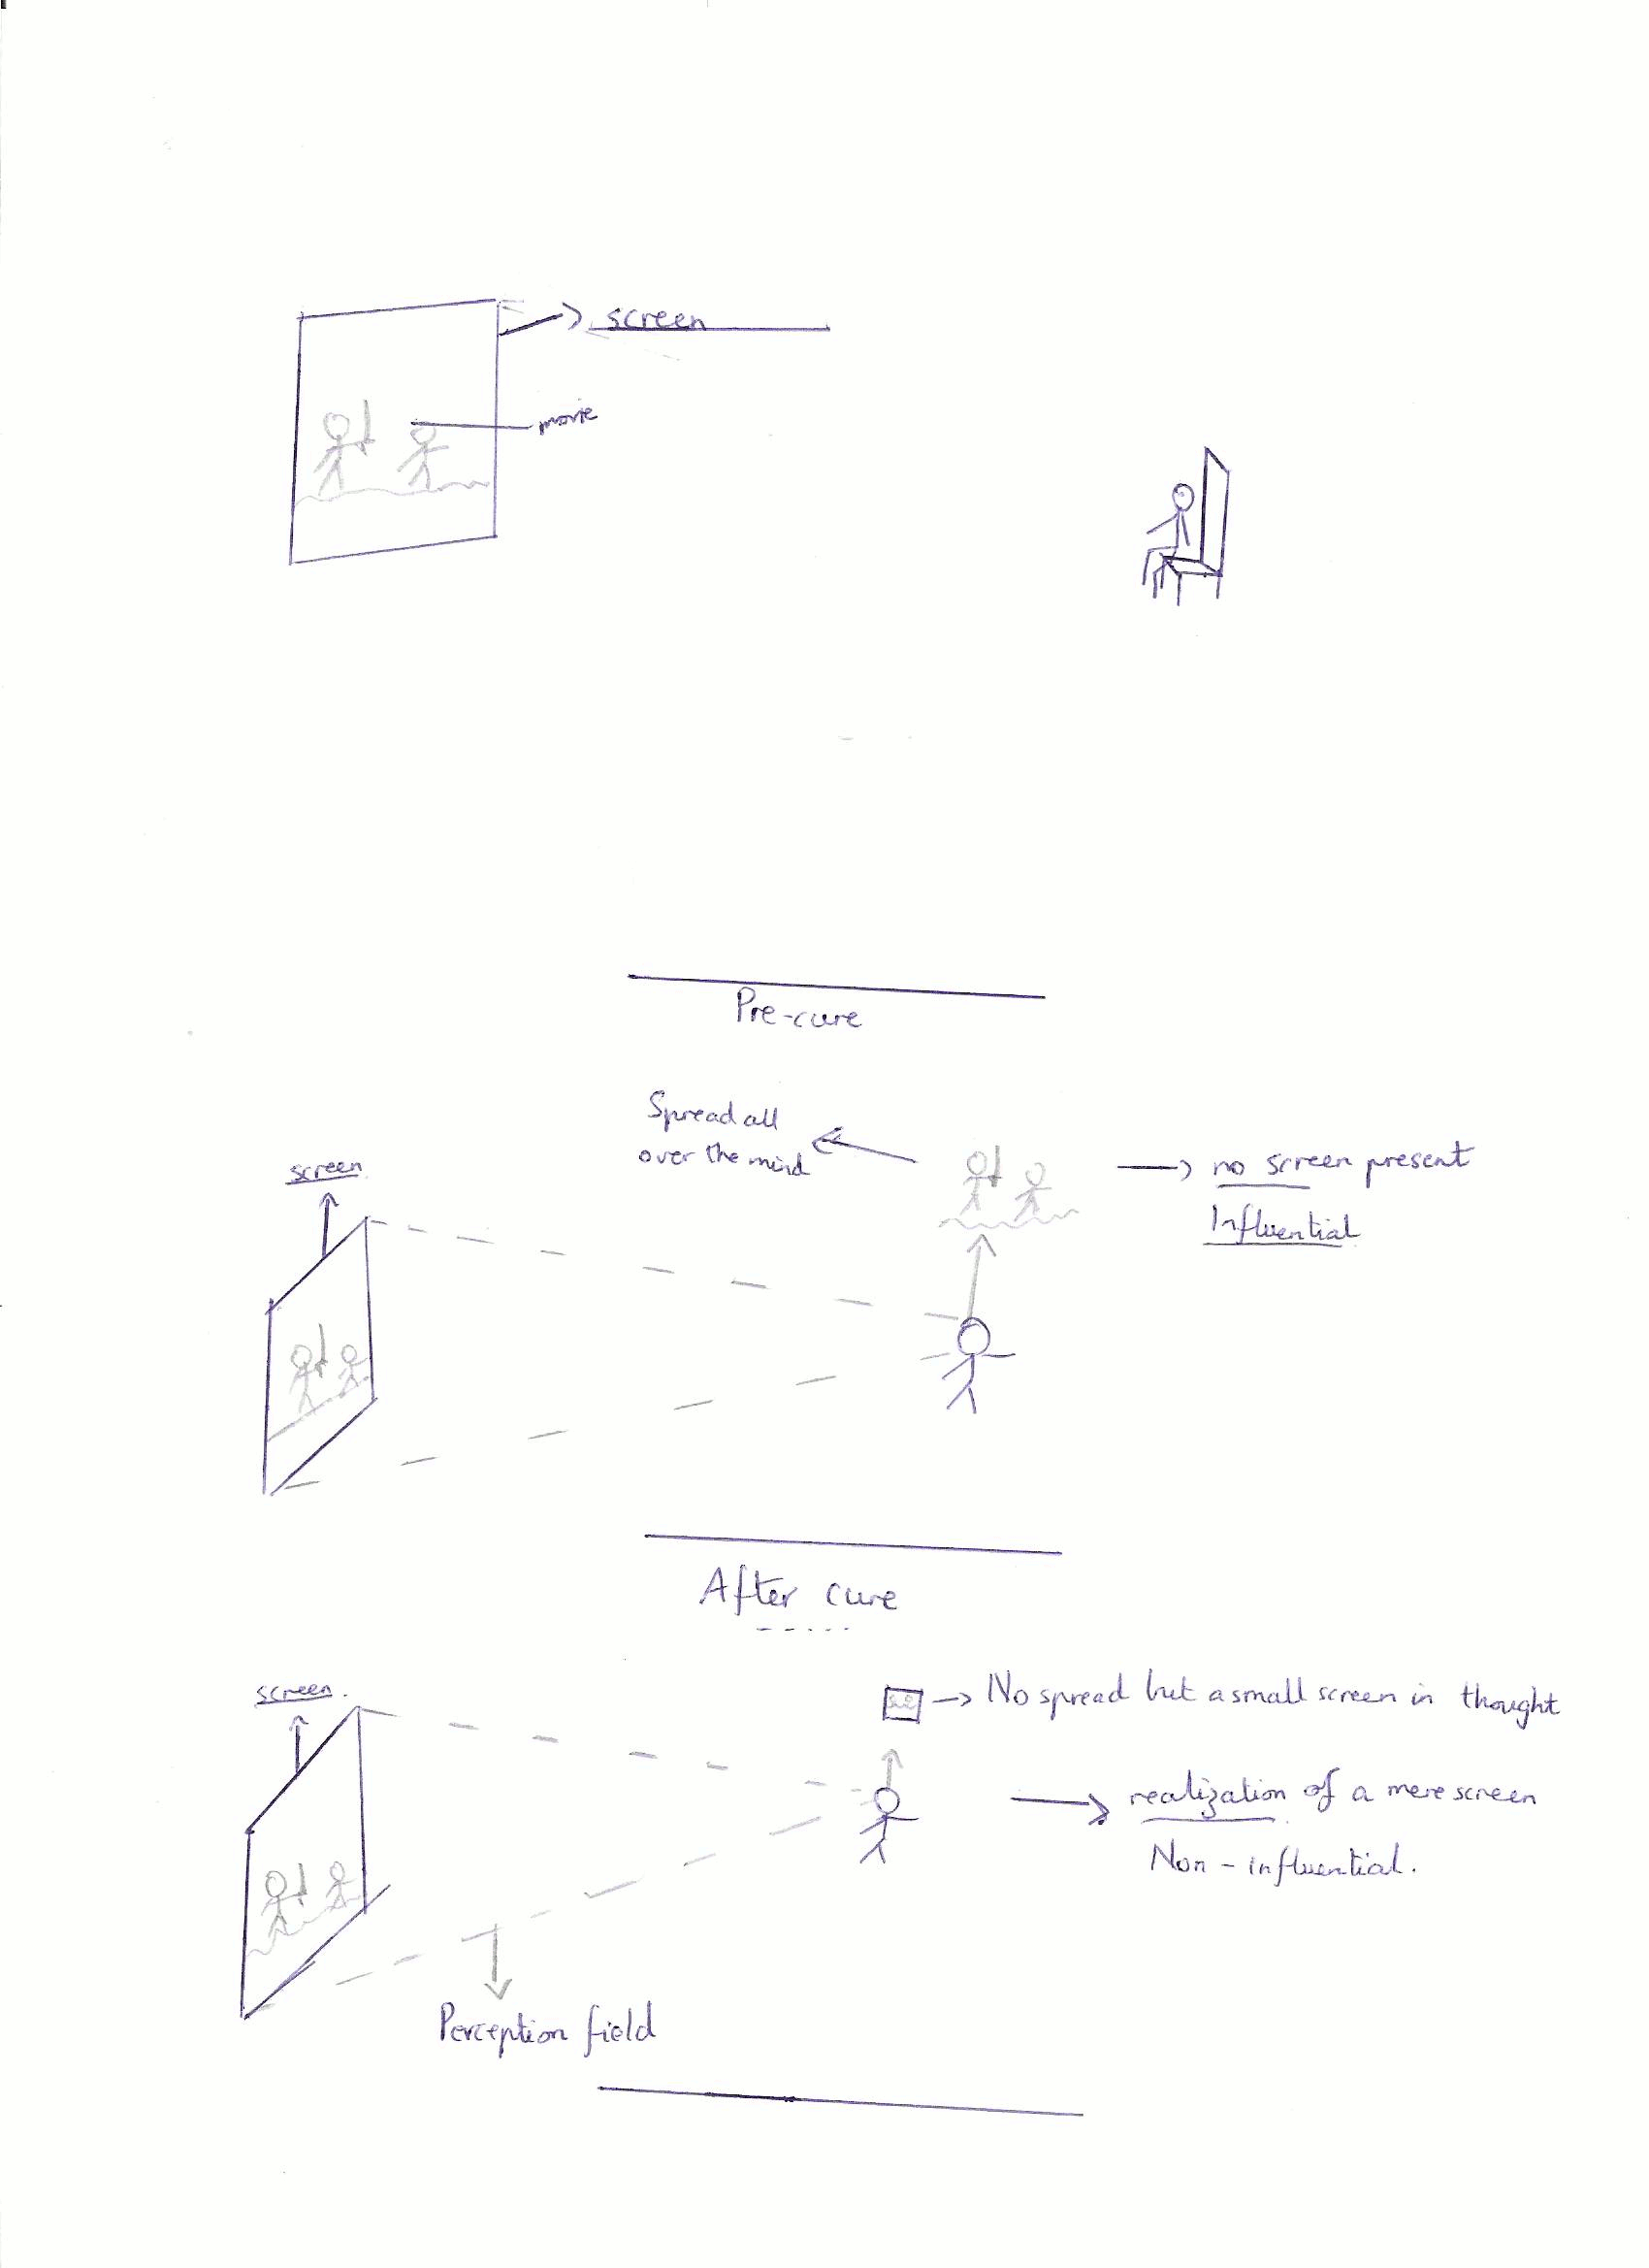 screen
movie
Pre-cure
Spread all
over the mind
no screen present
Influential
screen
After cure
screen.
No spread but a small screen in thought
realization of a mere screen
Non-influential.
Perception field